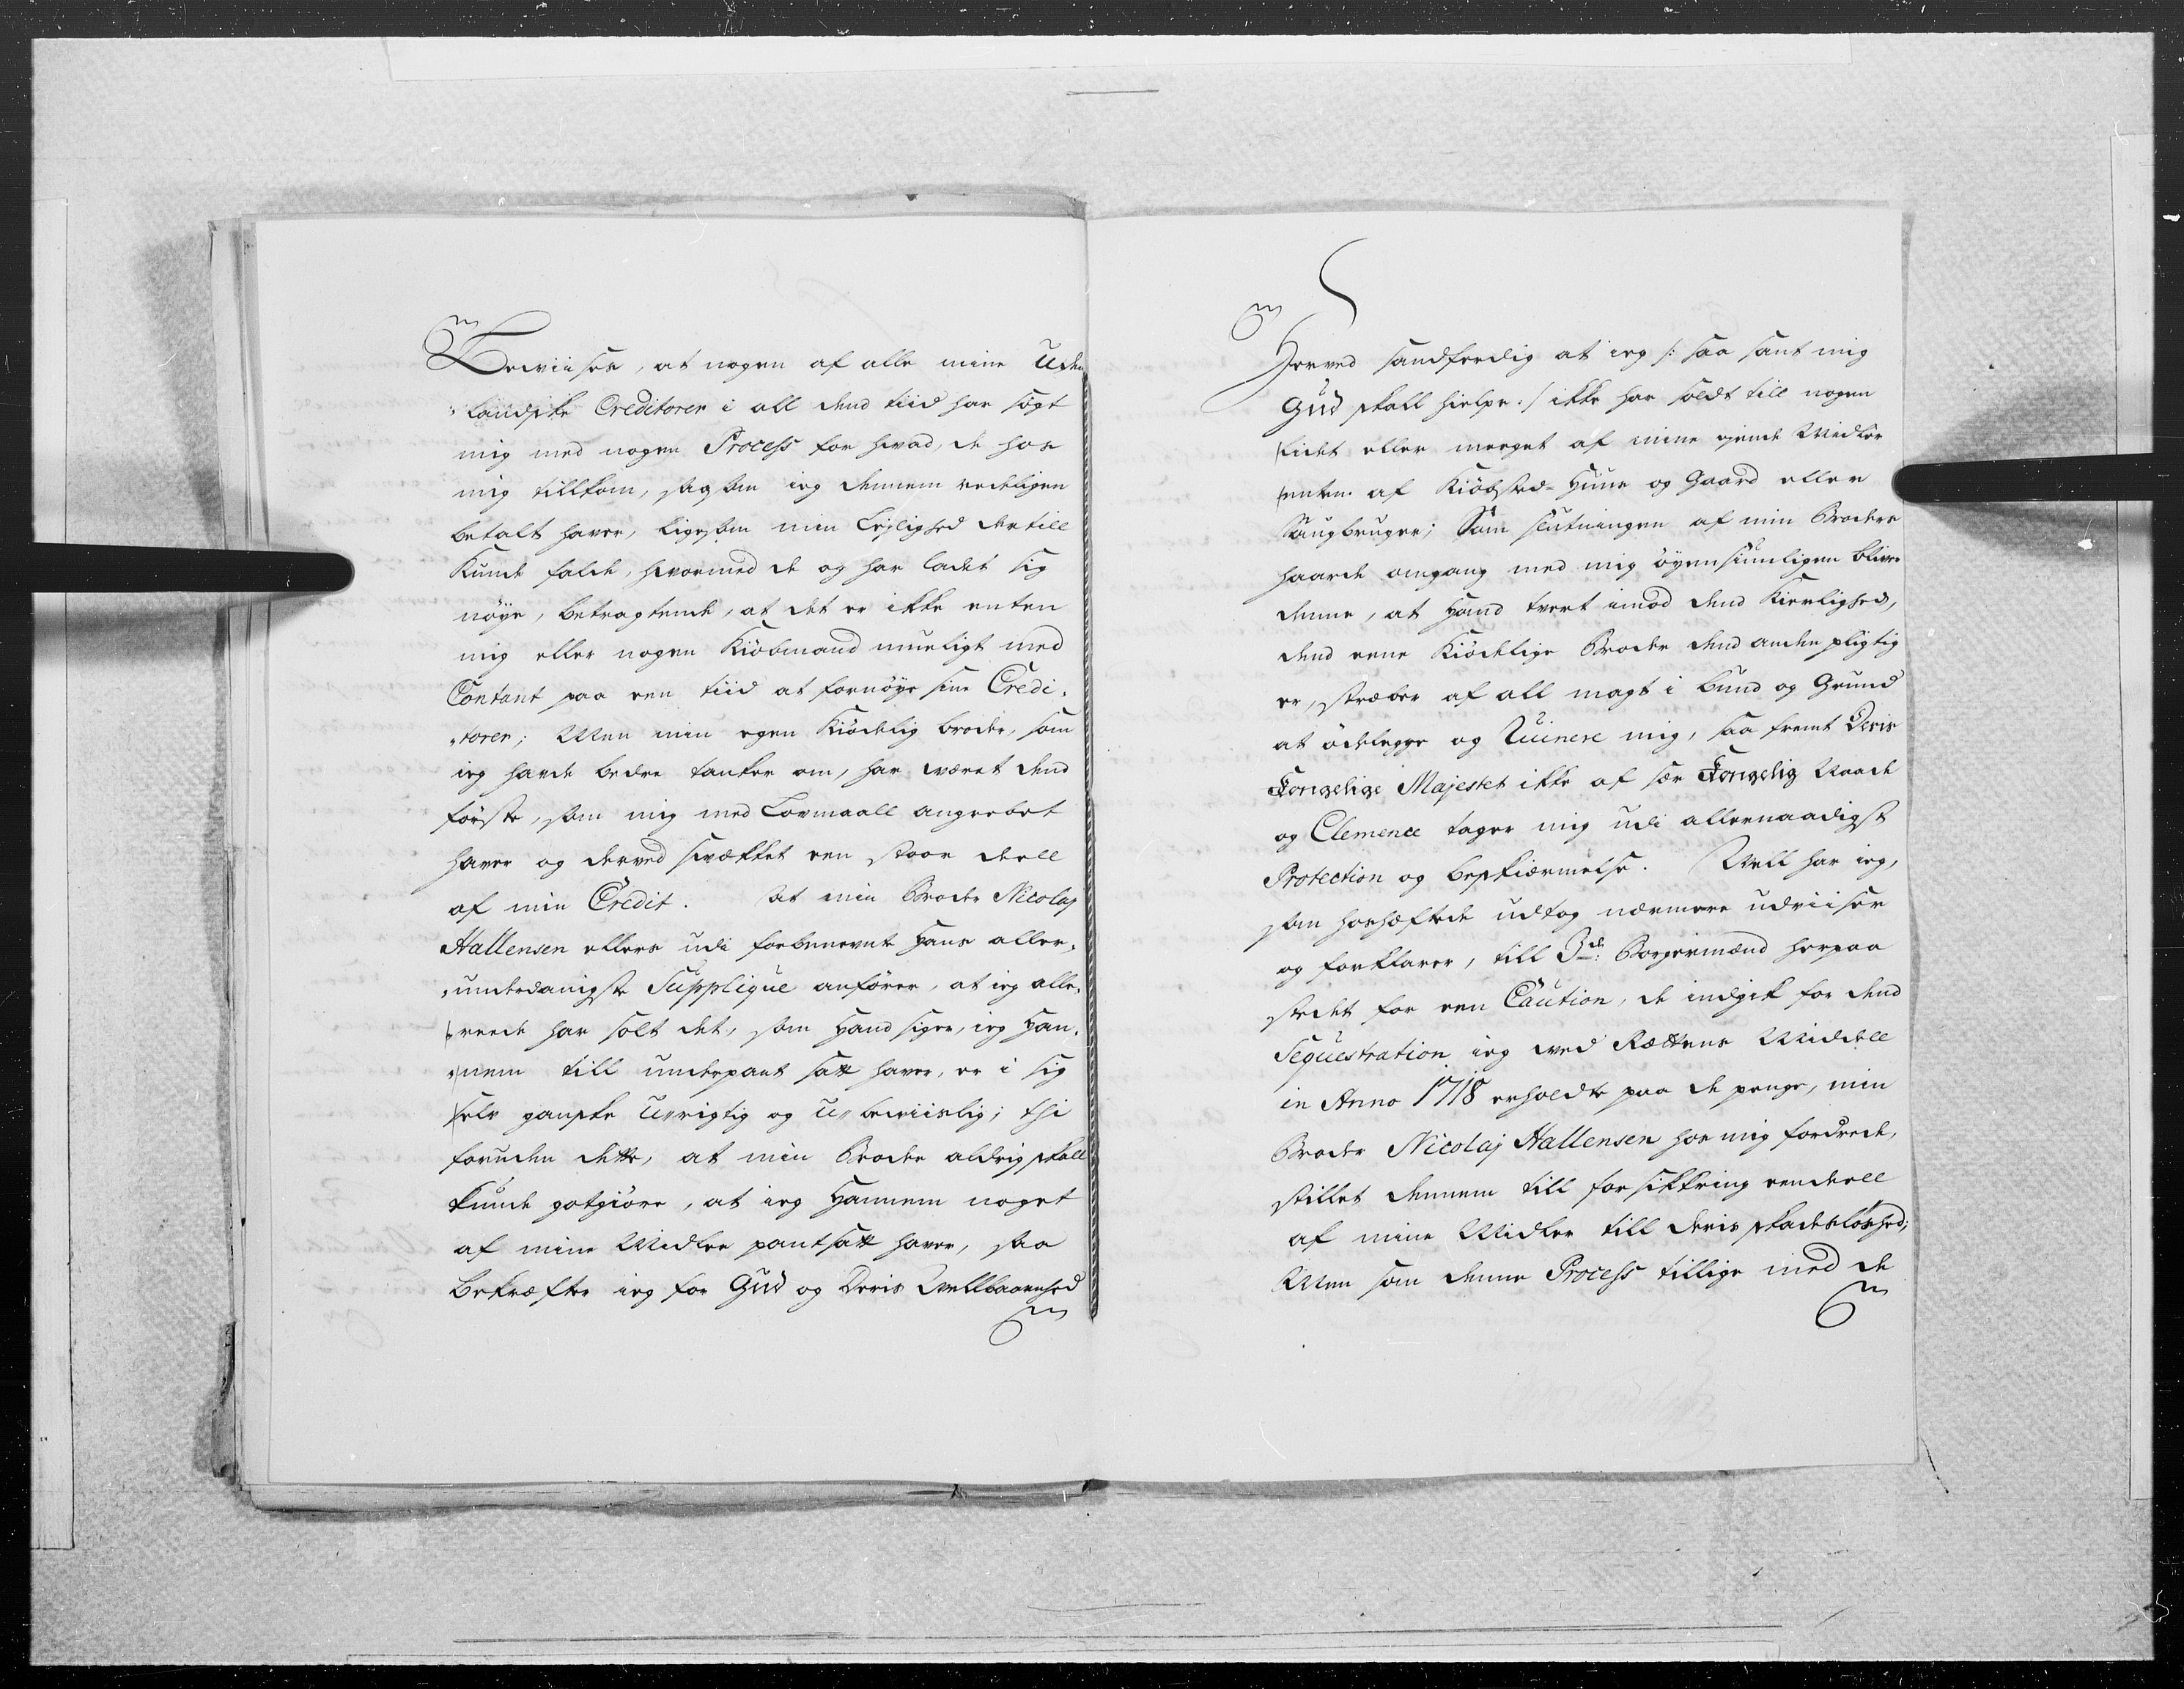 Bewiises, at nogen af alle mine Uden
„landske Creditorer i all dend tiid har søgt
mig med nogen Process for hvad, de hos
mig tillkom, som ieg dennem redeligen
betalt haver, ligesom min Leylighed dertill
Kunde falde, hvormed de og har ladet sig
nøye, betragtende, at det er ikke enten
mig eller nogen Kiøbmand mueligt med
Contant paa een tiid at fornøye sine Credi„
„torer; Men min egen Kiødelig broder, som
ieg hafde bedre tanker om, har været dend
første, som mig med Lovmaall angrebet
haver og derved svækket een stoor deell
af min Credit. At min Broder Nicolaj
Hallensen ellers udi forbenevnte Hans aller„
„underdanigste Supplique anfører, at ieg alle„
„reede har solt det, som Hand siger, ieg Han„
„nem till underpant satt haver, er i sig
selv ganske U„rigtig og U„beviislig; thi
foruden dette, at min Broder aldrig skall
kunde gotgiøre, at ieg Hannem noget
af mine Midler pantsatt haver, saa
Bekræfter ieg for Gud og Deris Wellbaarenhed
Herved sandferdig at ieg /: saa sant mig
Gud skall hielpe :/ ikke har soldt till nogen
lidet eller meeget af mine ejende Midler
enten af Kiøbsted-Huus og Gaard eller
Saugbruger; Som slutningen af min Broders
haarde omgang med mig øyensiunligen bliver
denne, at Hand tvert imod dend Kierlighed,
dend eene Kiødelige Broder dend anden pligtig
er, stræber af all magt i bund og Grund
at ødelegge og Ruinere mig, saa fremt Deris
Kongelige Majestet ikke af sær Kongelig Naade
og Clemence tager mig udi allernaadigst
Protection og beskiærmelse. Well har ieg,
som hoshæftede udtog nærmere udviiser
og forklarer, till 3de: Borgermænd herpaa
stedet for een Caution, de indgik for dend
Sequestration ieg ved Rættens Middell
in Anno 1718 erholdte paa de penge, min
Broder Nicolaj Hallensen hos mig fordrede,
stillet dennem till forsikkring eendeell
af mine Midler till deris skadesløshed;
Men som denne Process tillige med de